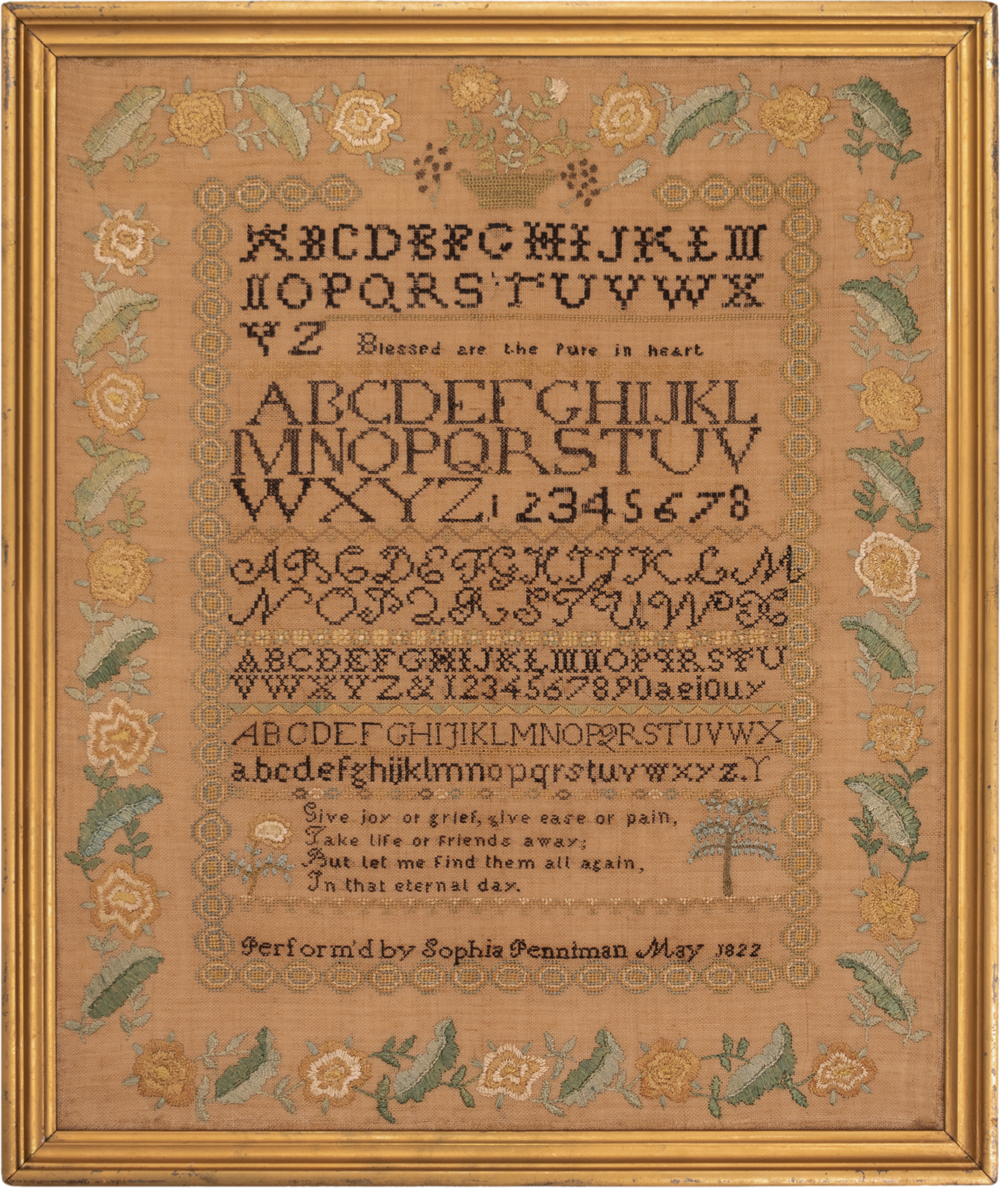 ABCDEFGHIJKLM
NOPQRSTUVWX
YZ Blessed are the Pure in heart
ABCDEFGHIJKL
MNOPQRSTUV
WXYZ 12345678
ABCDEFGHIJKLM
NOPQRSTUWXX
ABCDEFGHIJKLMNOPQRSTU
VWXYZ&1234567890aeiouy
ABCDEFGHIJKLMNOPQRSTUVWX
abcdefghijklmnopqrstuvwxyz.Y
Give joy or grief, give ease or pain,
Take life or friends away;
But let me find them all again,
In that eternal day.
Perform'd by Sophia Penniman May 1822